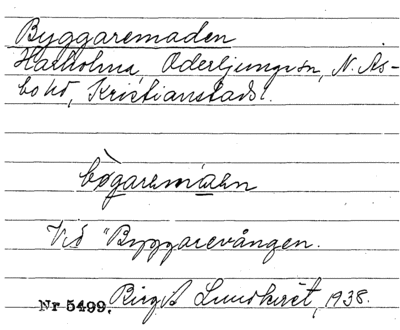 Byggaremaden
Hasholma, Oderljungvsn, N. Ås-
bo hd, Kristianstads l.
bògaremáen
Vid "Byggarevången.
Nr 5499. Birgit Lundkvist, 1938.